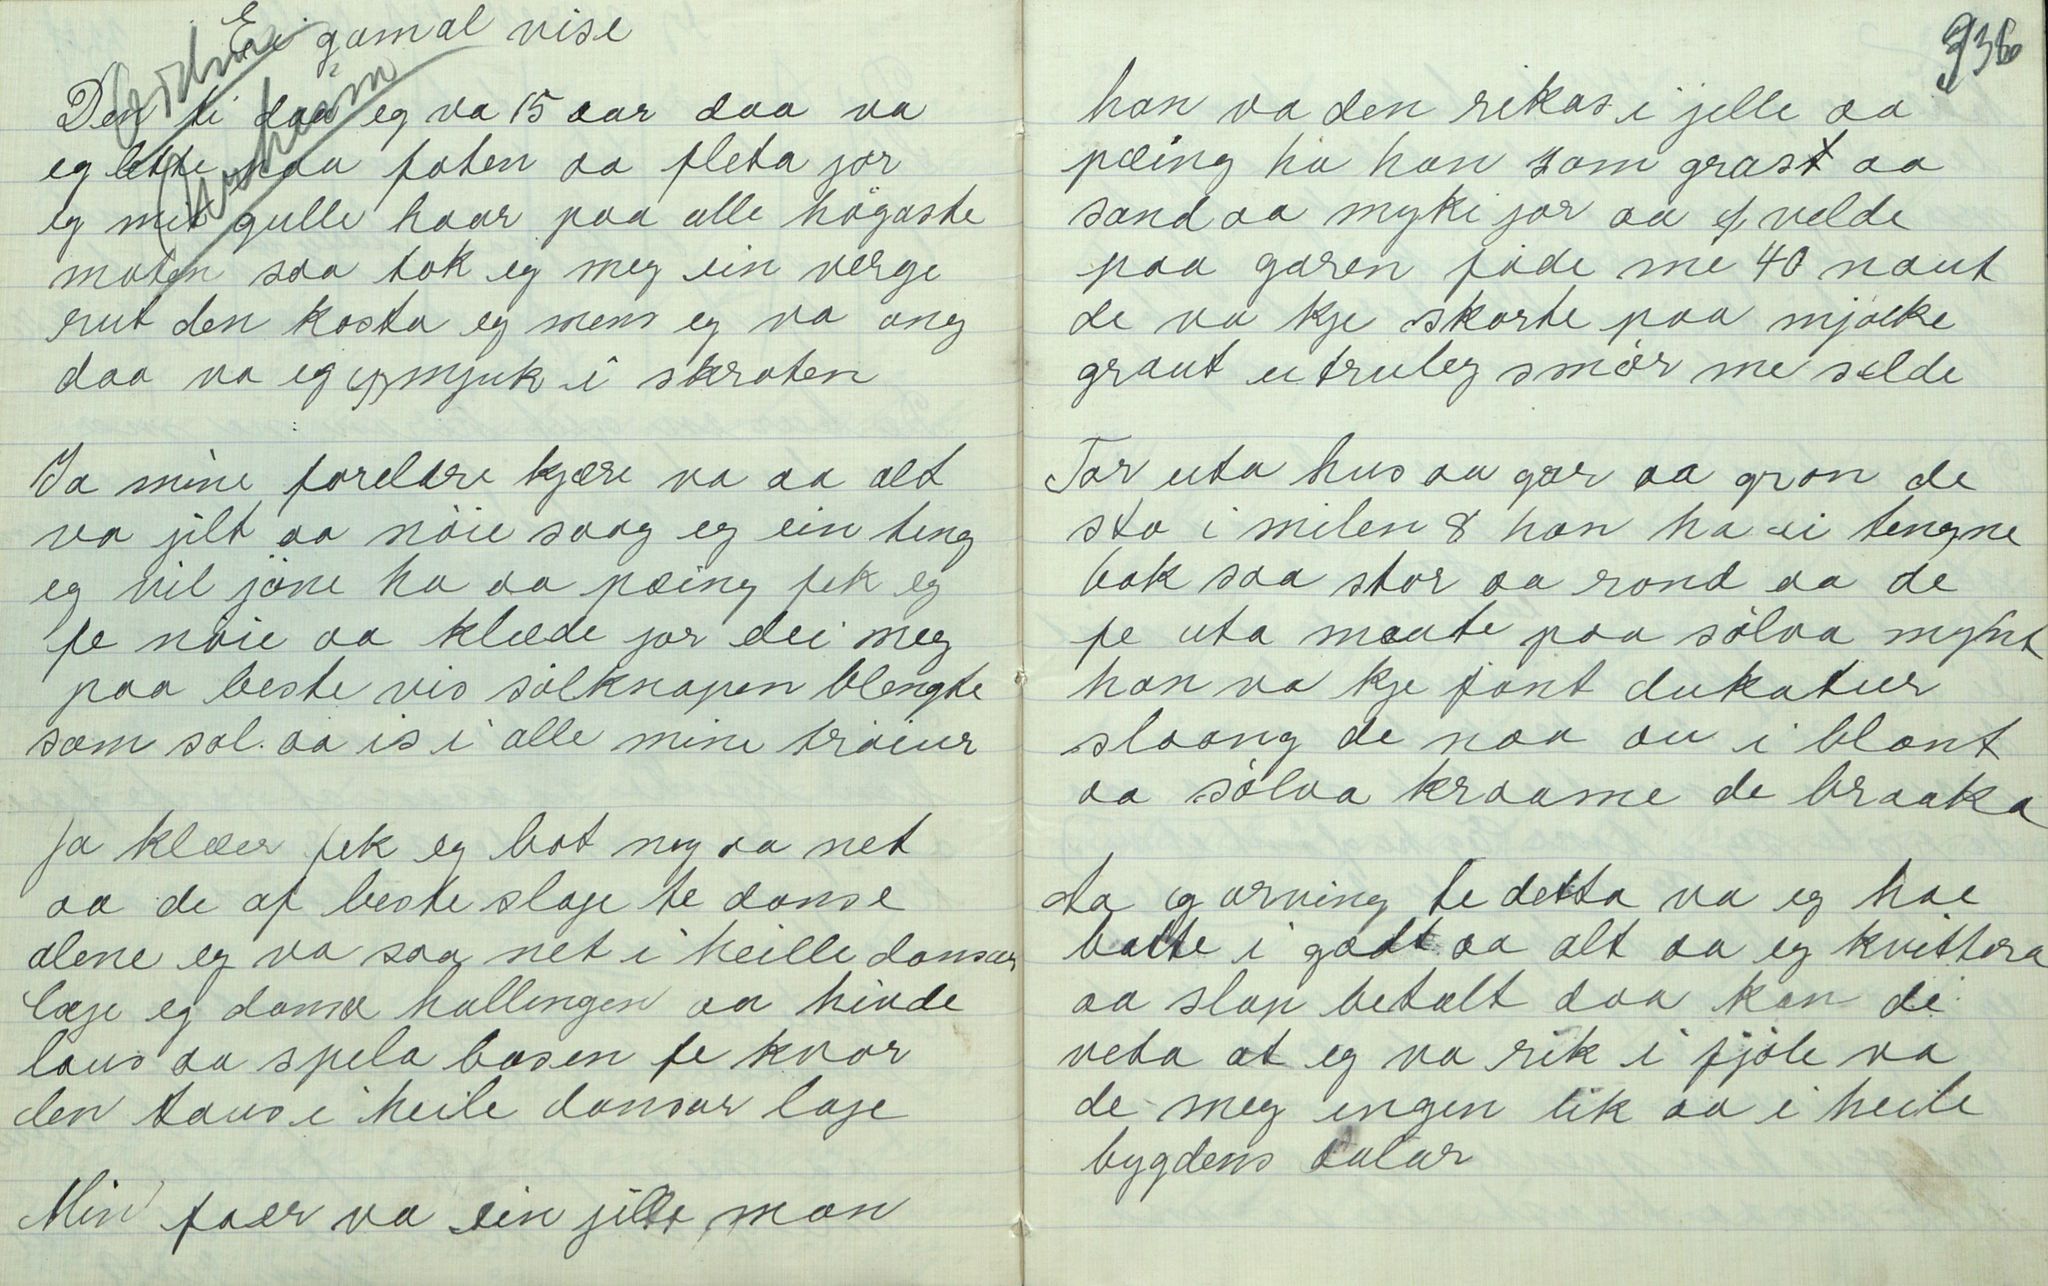 Ei gamal vise
Den ti daa eg va 15 aar daa va
eg lette paa foten aa fleta jor
eg mit gulle haar paa alle högaste
moten saa tok eg meg ein verge
rut den kosta eg mens eg va ong
daa va eg mjuk i skroten
Ja mine foreldre kjære va aa alt
va jilt aa nöie saag eg ein ting
eg vil jöne ha aa pæing fek eg
fe nöie aa klæde jor dei meg
paa beste vis sölknapen blengte
som sol aa is i alle mine tröiur
Ja klæer fek eg bot ny aa net
aa de af beste slaje te danse
alene eg va saa net i heille dansar
laje eg dansa hallingen aa hinde
laus aa spela basen fe kvar
den taus i heile dansar laje
Min faer va ein jilt man
936
han va den rikas i jelle aa
pæing ha han som grast aa
sand aa myki jor aa velde
paa garen föde me 40 naut
de va kje skorte paa mjölke
graut utruleg smör me selde
For uta hus aa gar aa gron de
sto i milen 8 han ha ei tengne
bok saa stor aa rond aa de
fe uta maate paa sölva mynt
han va kje font dukatur
slaang de naa au i blant
aa sölva kraame de braaka
ta eg arving te detta va eg hae
baate i godt aa alt aa eg kvittera
aa slap betalt daa kan di
veta at eg va rik i fjöle va
de meg ingen lik aa i heile
bygdens dalar